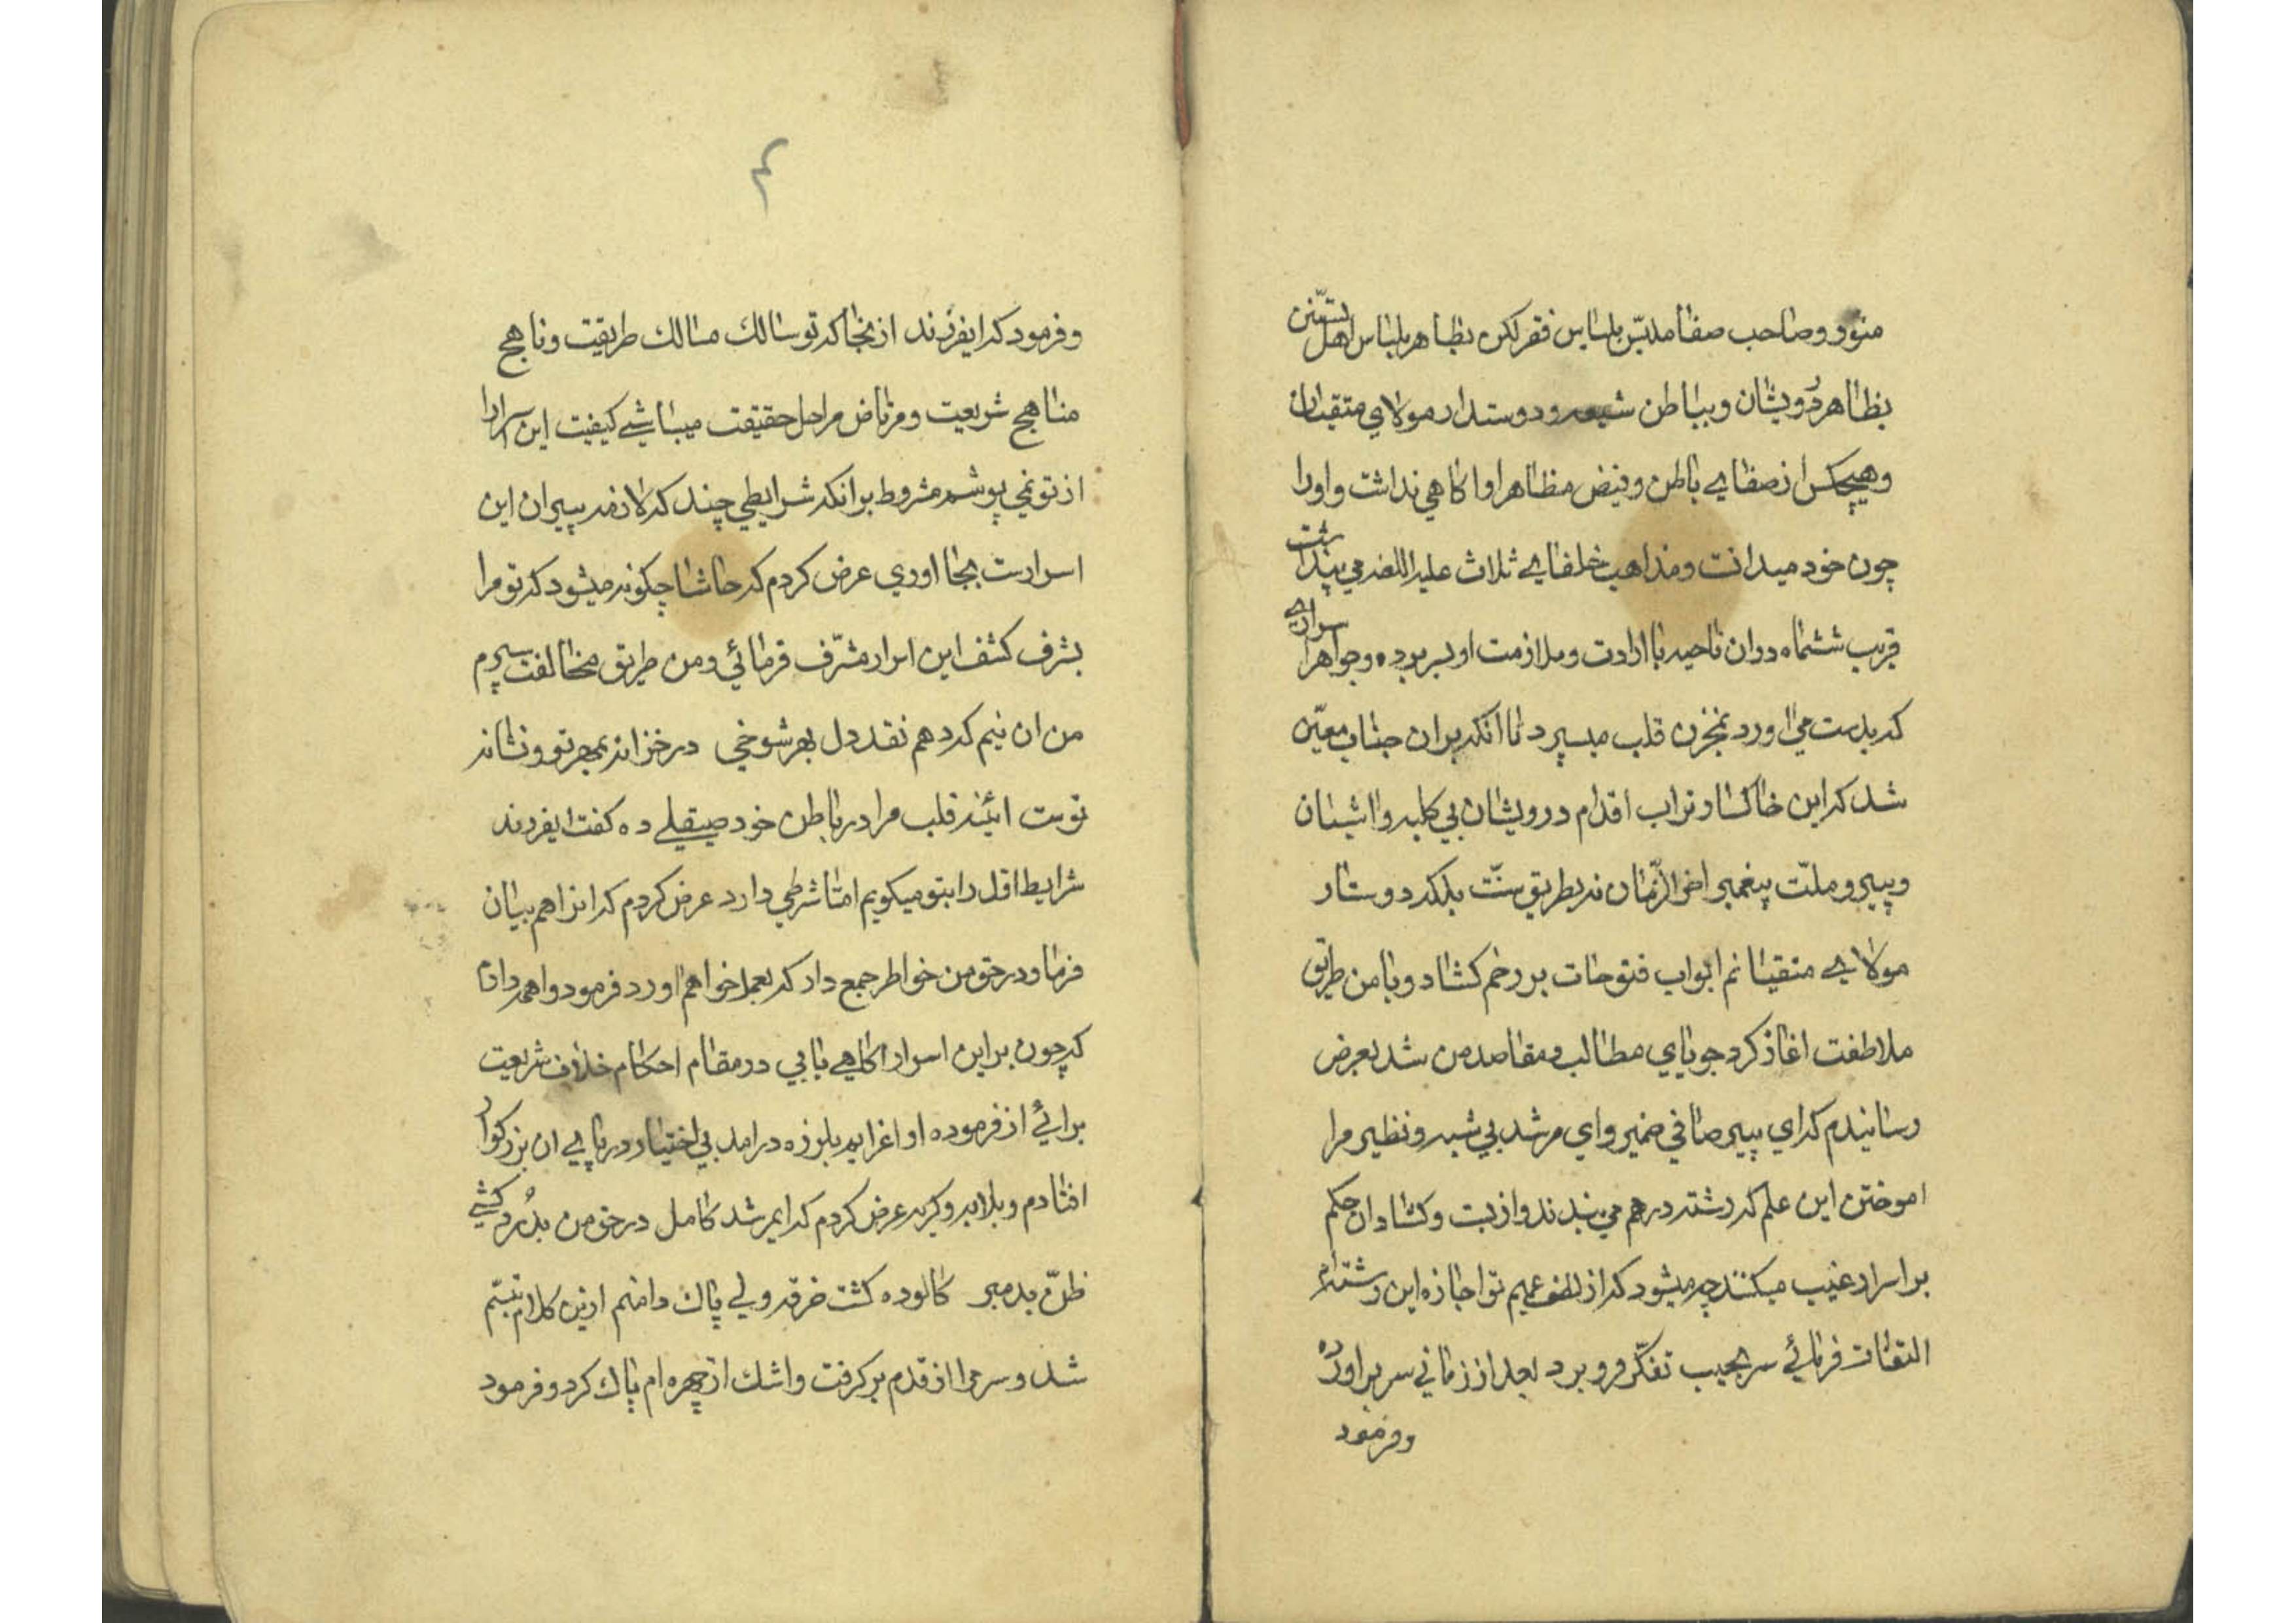 منور و صاحب صفا ملبّس بلباس فقر لکن بظاهر بلباس اهل تسنّن
بظاهر درویشان و بباطن شیعه و دوستدار مولای متقیان
و هیچکس از صفای باطن و فیض مظاهر او اکاهی نداشت و اورا
چون خود میدانت و مذاهب خلفای ثلاث علیه اللعنه می پنداشت
قریب ششماه دران ناحیه با ارادت و ملازمت او بسر برده و جواهر اسراری
که بدست می اورد بمخزن قلب میسپرد تا انکه بران جناب معیّن
شد که این خاکسار تراب اقدام درویشان بی کلبه و اشیان
و پیرو ملّت پیغمبر اخر الزّمان نه بطریق سنّت بلکه دوستار
مولای متقیانم ابواب فتوحات بر رخم کشاد و با من طریق
ملاطفت اغاز کرد جویای مطالب و مقاصد من شد بعرض
رسانیدم که ای پیر صافی ضمیر و ای مرشد بی شبه و نظیر مرا
اموختن این علم که رشته درهم می بندند و از بست و کشاد ان حکم
بر اسرار غیب میکنند چه میشود که از لطف عمیم تو اجازه این رشته ام
التفات فرمائی سر بجیب تفکّر فرو برد بعد از زمانی سر براورده
و فرمود
۴
و فرمود که ایفرزند از بخا که تو سالك مسالك طریقت و ناهج
مناهج شریعت و مرتاض مراحل حقیقت میباشی کیفیت این اسرار را
از تو نمی پوشم مشروط برانکه شرایطی چند که لازمه پیران این
اسرارت بجا اوری عرض کردم که حاشا چکونه میشود که تو مرا
بشرف کشف این اسرار مشرّف فرمائی و من طریق مخالفت سپرم
من ان نیم که دهم نقد دل بهر شوخی در خزانه بمهر تو و نشانه
توست ائینه قلب مرا در باطن خود صیقلی ده کفت ایفرزند
شرایط اقل را بتو میکویم امتا شرطی دارد عرض کردم که انرا هم بیان
فرما و در حق من خواطر جمع دار که بعمل خواهم اورد فرمود واهمه دارم
که چون بر این اسرار اکاهی یابی در مقام احکام خلاف شریعت
برائی از فرموده او اعزایم بلرزه درامد بی اختیار در پای ان بزرکوار
افتادم و بلابه و کریه عرض کردم که ایمرشد کامل در حق من بدرد کشی
ظنّ بد مبر کالوده کشت خرقه ولی پاك دامنم ازین کلام تبسّم
شد و سر مرا از قدم بر کرفت و اشك از چهره ام پاك کرد و فرمود